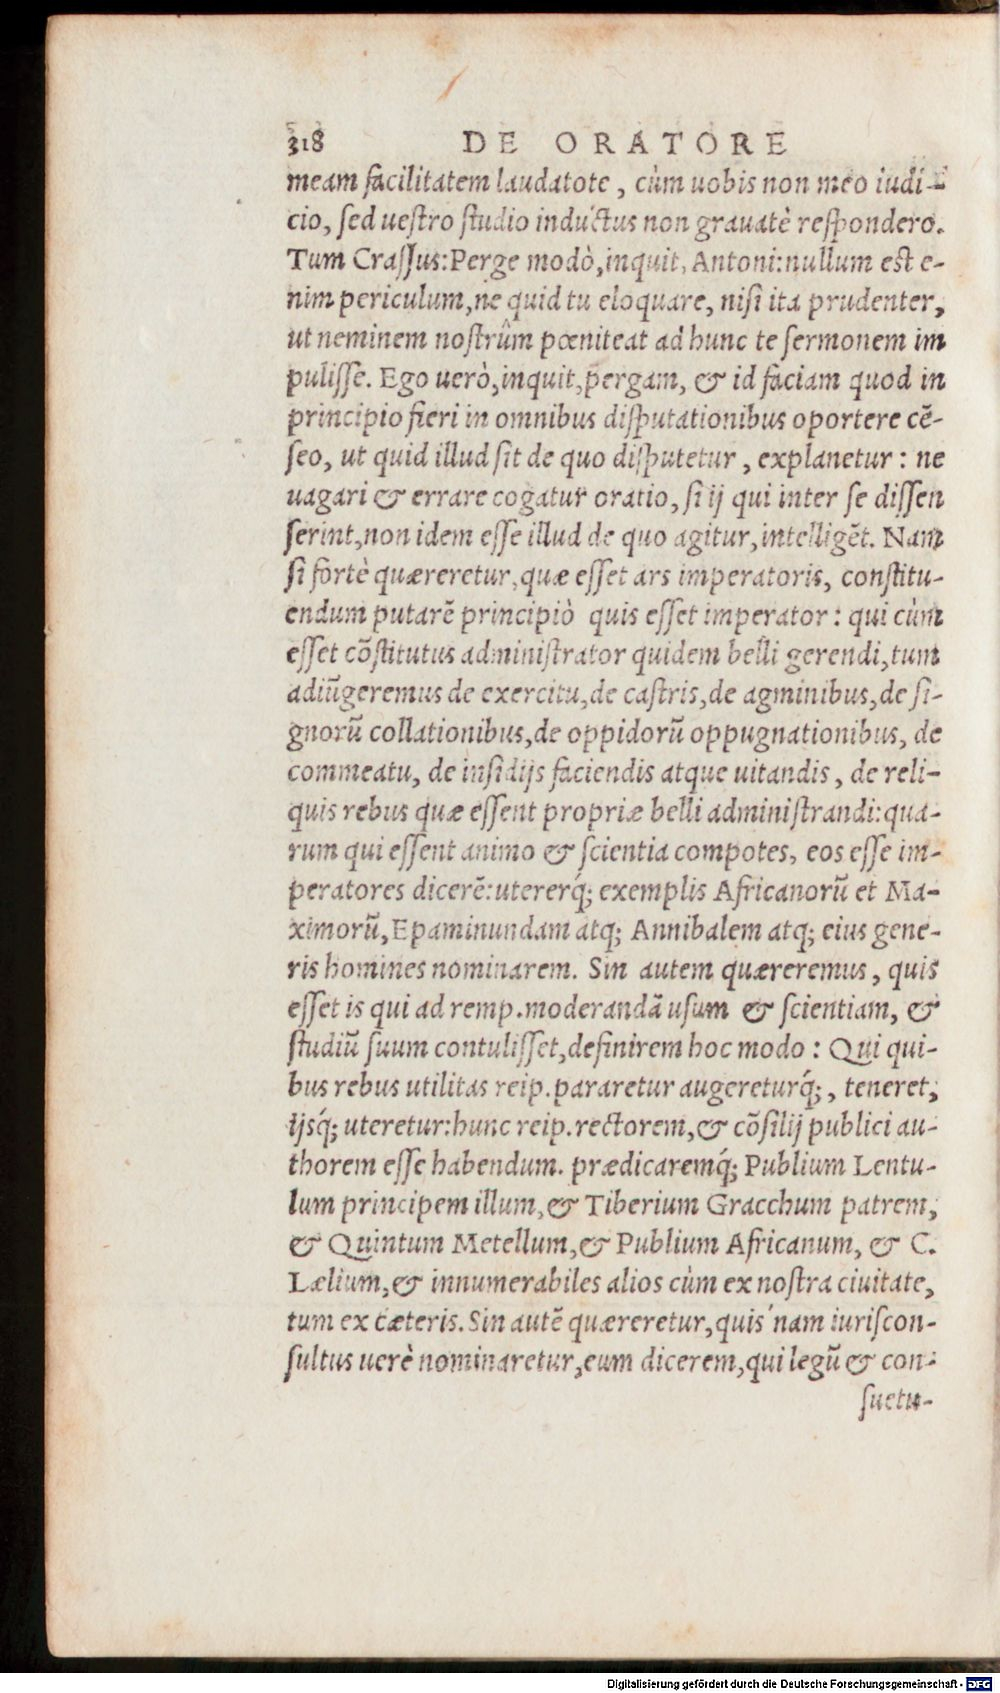 318 DE ORATORE
meam facilitatem laudatote, cùm uobis non meo iudi-
cio, sed uestro studio inductus non grauatè respondero.
Tum Crassus: Perge modò, inquit, Antoni: nullum est e-
nim periculum, ne quid tu eloquare, nisi ita prudenter,
ut neminem nostrûm pœniteat ad hunc te sermonem im
pulisse. Ego uerò, inquit, pergam, & id faciam quod in
principio fieri in omnibus disputationibus oportere cẽ-
seo, ut quid illud sit de quo disputetur, explanetur: ne
uagari & errare cogatur oratio, si ij qui inter se dissen
serint, non idem esse illud de quo agitur, intelligẽt. Nam
si fortè quæreretur, quæ esset ars imperatoris, constitu-
endum putarẽ principiò quis esset imperator: qui cùm
esset cõstitutus administrator quidem belli gerendi, tum
adiũgeremus de exercitu, de castris, de agminibus, de si-
gnorũ collationibus, de oppidorũ oppugnationibus, de
commeatu, de insidijs faciendis atque uitandis, de reli-
quis rebus quæ essent propriæ belli administrandi: qua-
rum qui essent animo & scientia compotes, eos esse im-
peratores dicerẽ: utererq́; exemplis Africanorũ et Ma-
ximorũ, Epaminundam atq; Annibalem atq; eius gene-
ris homines nominarem. Sin autem quæreremus, quis
esset is qui ad remp. moderandã usum & scientiam, &
studiũ suum contulisset, definirem hoc modo: Qui qui-
bus rebus utilitas reip. pararetur augereturq́;, teneret,
ijsq́; uteretur: hunc reip. rectorem, & cõsilij publici au-
thorem esse habendum. prædicaremq́; Publium Lentu-
lum principem illum, & Tiberium Gracchum patrem,
& Quintum Metellum, & Publium Africanum, & C.
Lælium, & innumerabiles alios cùm ex nostra ciuitate,
tum ex cæteris. Sin autẽ quæreretur, quis nam iuriscon-
sultus uerè nominaretur, eum dicerem, qui legũ & con-
suetu-
Digitalisierung gefördert durch die Deutsche Forschungsgemeinschaft - DFG